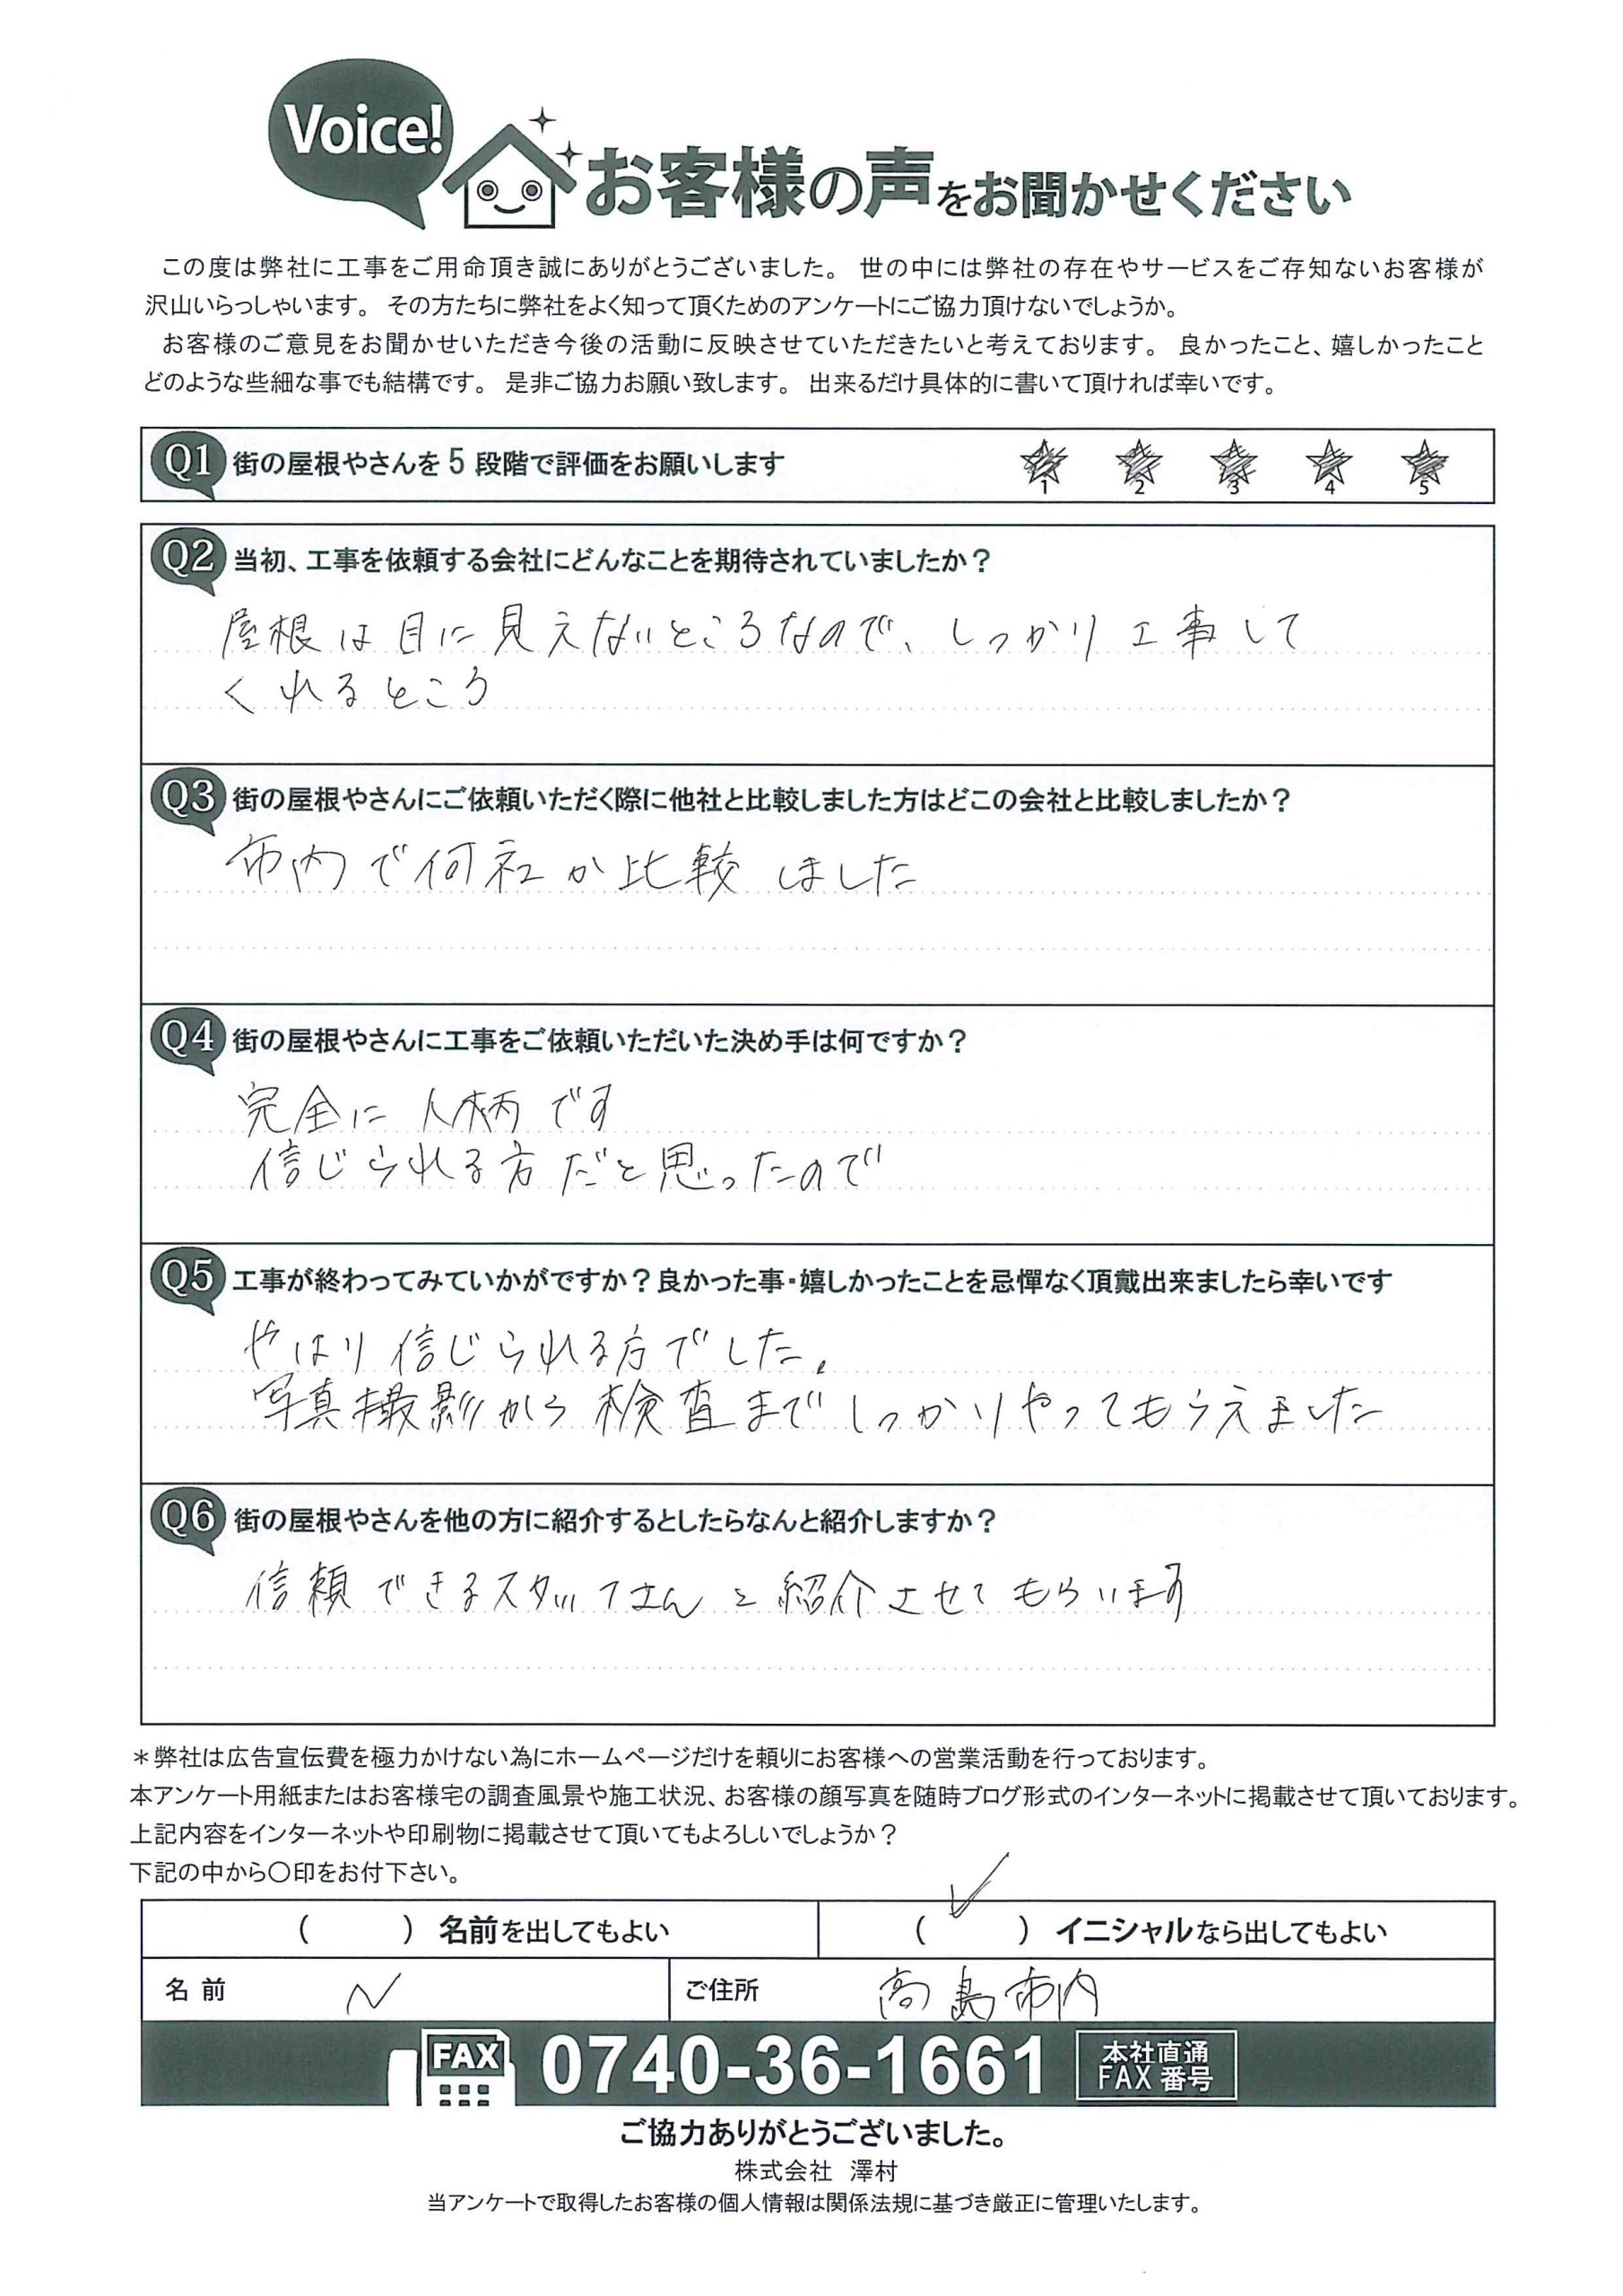 Voice!
お客様の声をお聞かせください
この度は弊社に工事をご用命頂き誠にありがとうございました。 世の中には弊社の存在やサービスをご存知ないお客様が
沢山いらっしゃいます。 その方たちに弊社をよく知って頂くためのアンケートにご協力頂けないでしょうか。
お客様のご意見をお聞かせいただき今後の活動に反映させていただきたいと考えております。 良かったこと、嬉しかったこと
どのような些細な事でも結構です。 是非ご協力お願い致します。 出来るだけ具体的に書いて頂ければ幸いです。
Q1 街の屋根やさんを 5 段階で評価をお願いします
1 2 3 4 5
Q2 当初、工事を依頼する会社にどんなことを期待されていましたか？
屋根は目に見えないところなので、しっかり工事して
くれるところ
Q3 街の屋根やさんにご依頼いただく際に他社と比較しました方はどこの会社と比較しましたか？
市内で何社か比較しました
Q4 街の屋根やさんに工事をご依頼いただいた決め手は何ですか？
完全に人柄です
信じられる方だと思ったので
Q5 工事が終わってみていかがですか？良かった事・嬉しかったことを忌憚なく頂戴出来ましたら幸いです
やはり信じられる方でした。
写真撮影から検査までしっかりやってもらえました
Q6 街の屋根やさんを他の方に紹介するとしたらなんと紹介しますか？
信頼できるスタッフさんと紹介させてもらいます
＊弊社は広告宣伝費を極力かけない為にホームページだけを頼りにお客様への営業活動を行っております。
本アンケート用紙またはお客様宅の調査風景や施工状況、お客様の顔写真を随時ブログ形式のインターネットに掲載させて頂いております。
上記内容をインターネットや印刷物に掲載させて頂いてもよろしいでしょうか？
下記の中から〇印をお付下さい。
（　　）名前を出してもよい （✓）イニシャルなら出してもよい
名 前 N ご住所 高島市内
FAX 0740-36-1661 本社直通
FAX 番号
ご協力ありがとうございました。
株式会社 澤村
当アンケートで取得したお客様の個人情報は関係法規に基づき厳正に管理いたします。